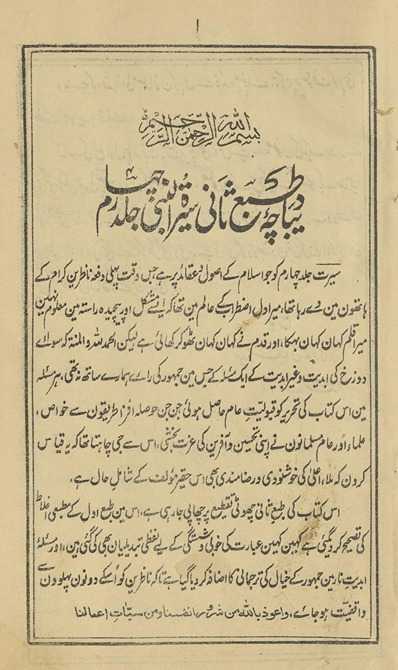 بسم اللہ الرحمن الرحیم
دیباچۂ طبع ثانی سیرۃ النبی جلد چہارم
سیرت جلد چہارم کو جو اسلام کے اصول و عقائد پر ہے جس وقت پہلی دفعہ ناظرین کرام کے
ہاتھون مین دے رہا تھا، میرا دل اضطراب کے عالم مین تھا کہ ایسے مشکل اور پیچیدہ راستہ مین معلوم نہین
میرا قلم کہان کہان بہکا، اور قدم نے کہان کہان ٹھوکر کھائی ہے لیکن الحمد للہ والمنۃ کہ سوائے
دوزخ کی ابدیت و غیر ابدیت کے ایک مسئلہ کے جس مین جمہور کی رائے ہمارے ساتھ نہ تھی، ہر مسئلہ
مین اس کتاب کی تحریر کو قبولیتِ عام حاصل ہوئی، جن جن حوصلہ افزا طریقون سے خواص،
علماء اور عام مسلمانون نے اپنی تحسین و آفرین کی عزت بخشی، اس سے جی چاہتا تھا کہ یہ قیاس
کرون کہ ملاءِ اعلیٰ کی خوشنودی و رضامندی بھی اس حقیر مؤلف کے شاملِ حال ہے،
اس کتاب کی طبع ثانی چھوٹی تقطیع پر چھاپی جارہی ہے، اس مین طبع اول کے مطبعی اغلاط
کی تصحیح کردی گئی ہے، کہین کہین عبارت کی خوبی و شستگی کے لیے لفظی تبدیلیان بھی کی گئی ہین، اور مسئلۂ
ابدیتِ نار مین جمہور کے خیال کی ترجمانی کا اضافہ کر دیا گیا ہے تاکہ ناظرین کو اسکے دونون پہلوون سے
واقفیت ہو جائے، واعوذ باللہ من شرور انفسنا ومن سیئات اعمالنا